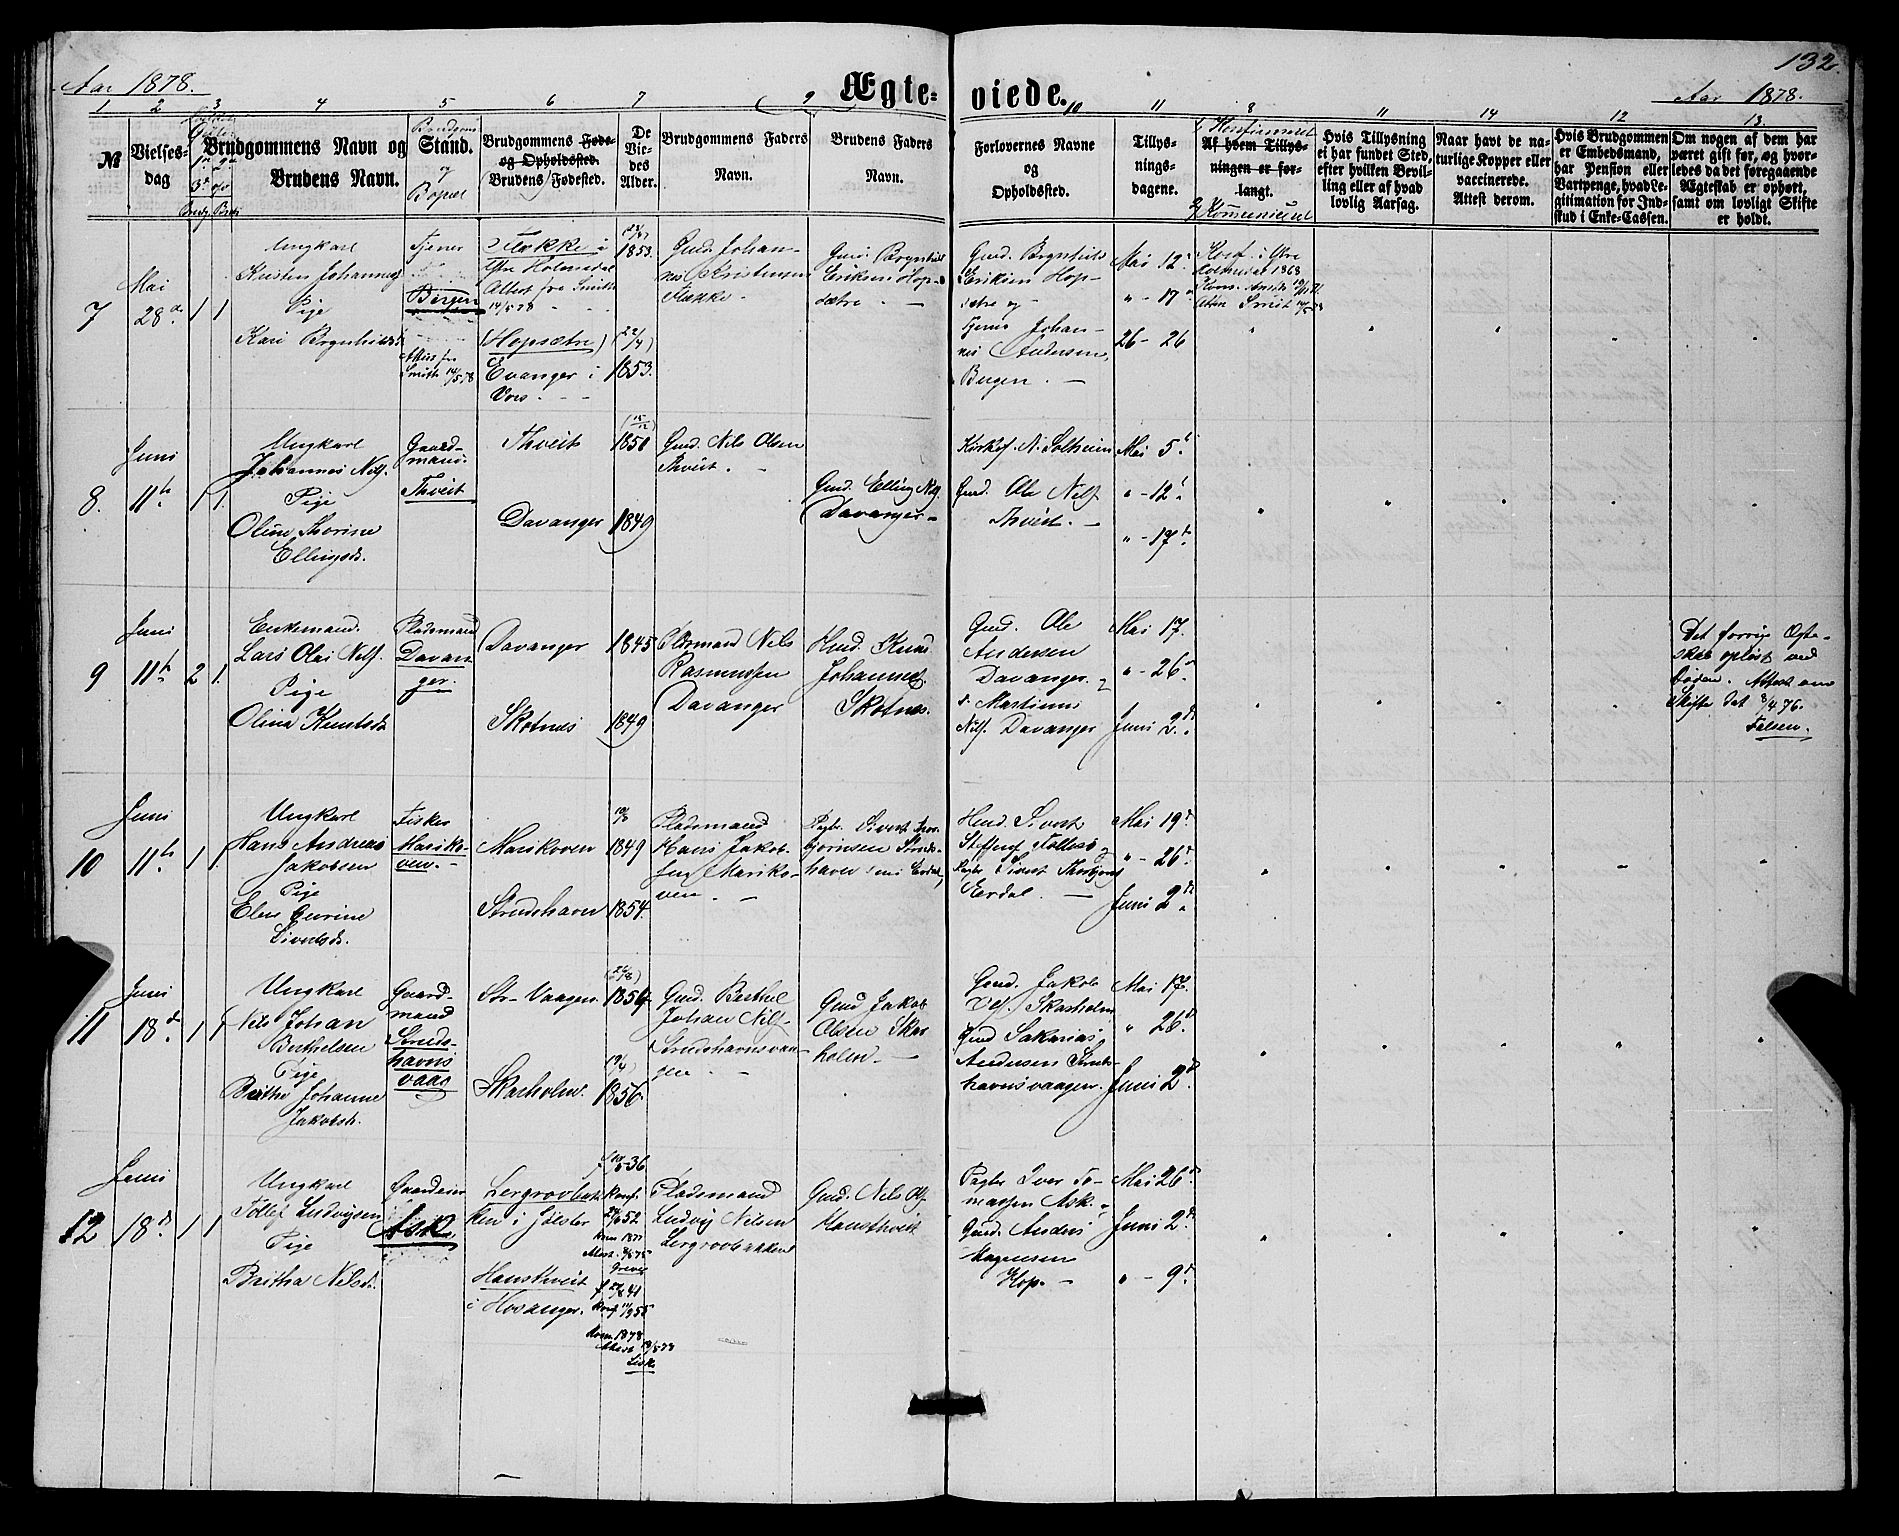 132
Aar 1878.
Ægteviede.
Aar 1878.
1 2 3 4 5 6 7 9 10 11 8 11 14 12 13
№
Vielses-
dag
Brudgommens Navn og
Brudens Navn.
Brudgoms
Stand.
og
Bopæl
Brudgommens Føde-
og Opholdssted.
Brudens Fødested.
De
Vie-
des
Alder.
Brudgommens Faders
Navn.
Brudens Faders
Navn.
Forlovernes Navne
og
Opholdssted.
Tillys-
nings-
dagene.
1/ Konfirmeret
Af hvem Tillys-
ningen er for-
langt.
2/ Kommuniceret
Hvis Tillysning
ei har fundet Sted,
efter hvilken Bevil-
ling eller af hvad
lovlig Aarsag.
Naar havt de na-
turlige Kopper eller
vaccinerede.
Attest derom.
Hvis Brudgommen
er Embedsmand,
har Pension eller
Vartpenge, hvad Le-
gitimation for Ind-
skud i Enke-Cassen.
Om nogen af dem har
været gift før, og hvor-
ledes da det foregaaende
Ægteskab er ophørt,
samt om lovligt Skifte
er holdt.
7
Mai
28de
1 1
Ungkarl
Kristen Johannes
Pige
Kari Brynhilds
Tjener
Bergen
Attest fra
Smith 14/5 78
Flække i
Ytre Holmedal
Attest fra Smith
14/5 78
(Hopsætre)
Evanger i
Vors
1853
(22/4)
1853.
Gmd. Johan-
nes Kristensen
Flække
Gmd. Brynhild
Eriksen Hop-
sætre
Gmd. Brynhild
Eriksen Hop-
sætre og
Tjener Johan-
nes Andersen,
Bergen.
Mai 12
" - 17
26 - 26
Konf. i Ytre
Holmedal 1868
8.
Juni
11te
1 1.
Ungkarl
Johannes Nils.
Pige
Oline Thorine
Ellingsd.
Gaard-
mand.
Thveit
Thveit
Davanger
1850
1849
Gmd. Nils Olsen
Thveit.
Gmd. Elling Nils.
Davanger
Kirkesf. N. Solheim
Gmd. Ole Nils.
Thveit.
Mai 5te
" - 12te
" - 17de
9
Juni
11te
2 1.
Enkemand.
Lars Olai Nils.
Pige
Olina Knutsd.
Pladsmand
Davan-
ger.
Davanger
Skotnes
1845
1849
Pladsmand Nils
Rasmussen
Davanger
Hmd. Knud
Johannes
Skotnes.
Gmd. Ole
Andersen
Davanger og
do. Martinus
Nils. Davanger
Mai 17.
" - 26
Juni 2d.
Det forrige Ægte-
skab opløst ved
Døden. Attest om
Skifte dat 3/4 76.
Falsen.
10
Juni
11te
1 1.
Ungkarl
Hans Andreas
Jakobsen
Pige
Elen Gurine
Sivertsd.
Fisker
Mariko-
ven.
Marikoven
Strudshavn
1849
1854.
Pladsmand
Hans Jakob-
sen Mariko-
ven.
Pagtr. Sivert Thor-
bjørnsen Struds-
havn
Hmd. Sivert
Steffens. Follesø og
Pagtr. Sivert Thorbjørns.
Erdal.
Mai 19d.
" - 26d.
Juni 2d.
11
Juni
18de
1 1
Ungkarl
Nils Johan
Berthelsen
Pige
Brithe Johanne
Jakobsd.
Gaard-
mand
Struds-
havns
vaag
Str. Vaagen
Skarholm.
1854
1856.
Gmd. Berthel
Johan Nils.
Strudshavnsvaa-
gen.
Gmd Jakob
Olsen Skar-
holm.
Gmd. Jakob
Ols. Skarholm
Gmd Sakarias
Andersen Struds-
havnsvaagen.
Mai 17.
" 26d.
Juni 2d.
12
Juni
18d.
1 1
Ungkarl
Tollef Ludvigsen
Pige
Britha Nilsd.
Gaardeier
Ask.
Lergrovbak-
ken i Jølster
Hansthveit
i Hosanger.
36
Konf.
52
Kom 1877
Attest
Grever
41
Konf. 55
Kom 1878
Attest
Pladsmand
Ludvig Nilsen
Lergrovbakken
Gmd. Nils Ols.
Hansthveit
Pagtr Iver To-
massen Ask. og
Gmd. Anders
Magnusen
Hop.
Mai 26d.
Juni 2d.
" - 9d.